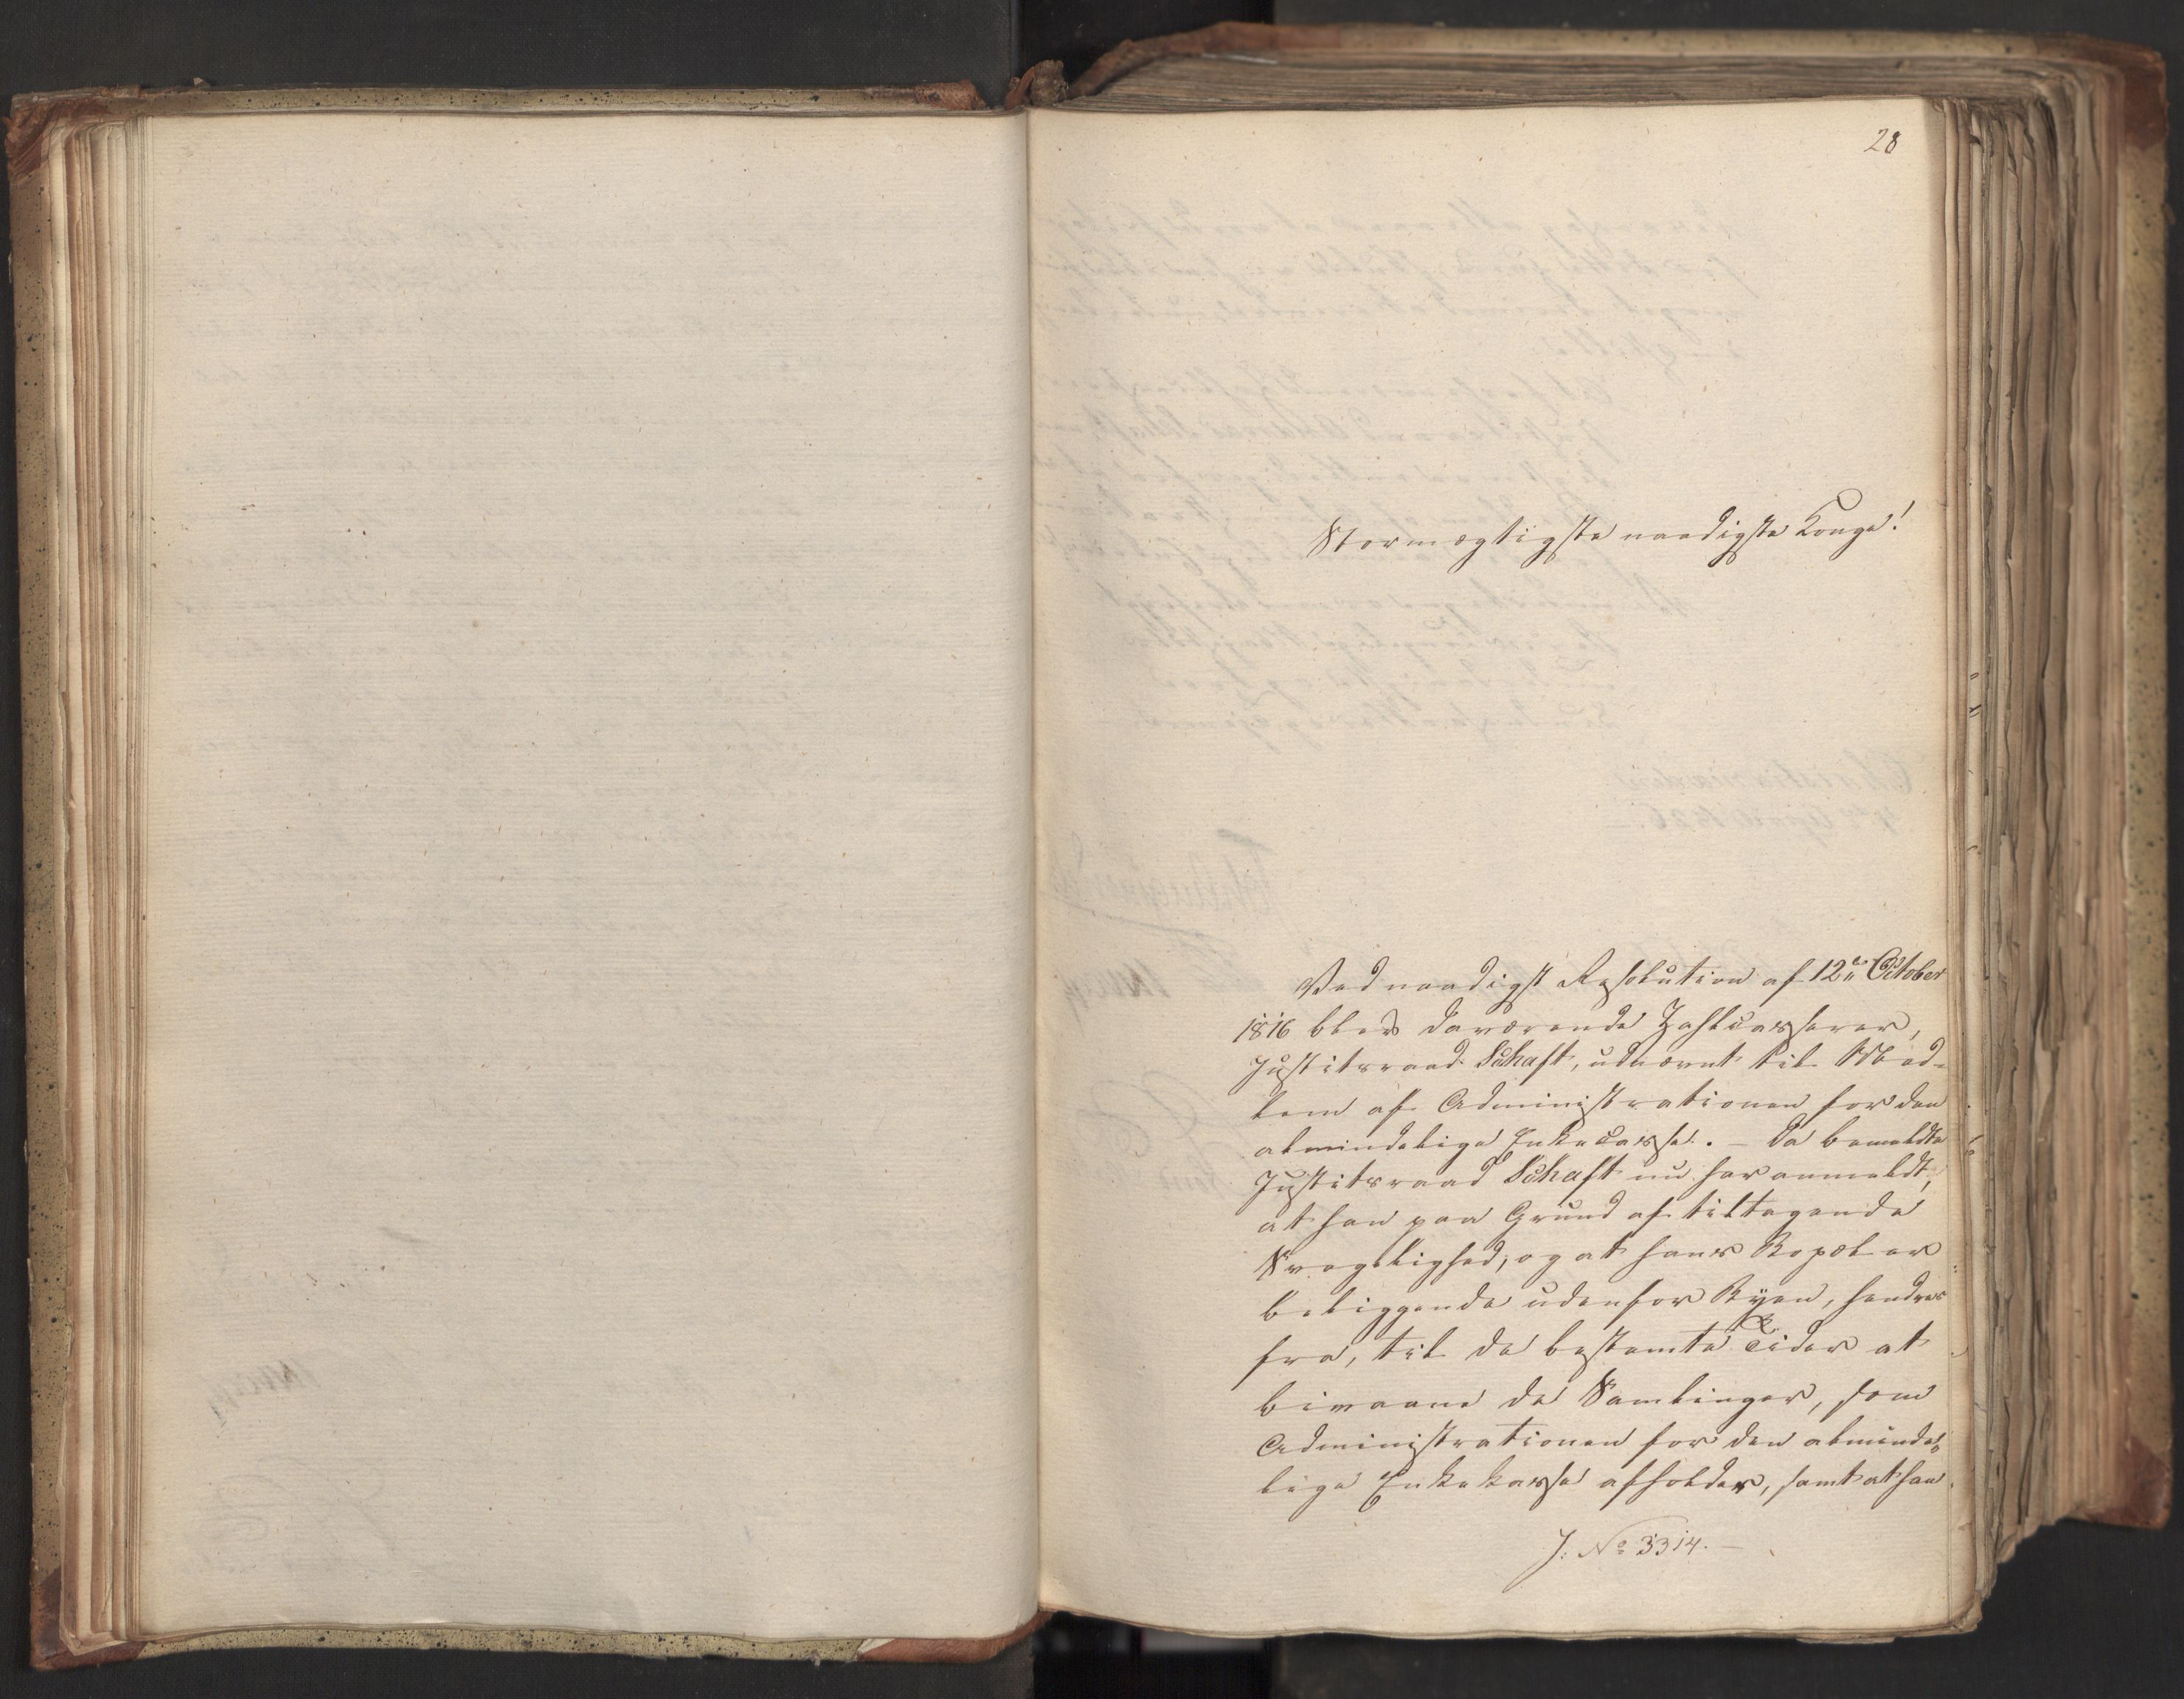 28
Stormægtigste naadigste Konge!
Ved naadigst Resolution af 12te October
1816 blev daværende Zahlcasserer,
Justitsraad Schaft, udnævnt til Med-
lem af Administrationen for den
almindelige Enkecasse. - Da bemeldte
Justitsraad Schaft nu har anmeldt,
at han paa Grund af tiltagende
Svagelighed, og at hans Bopæl er
beliggende udenfor Byen, hindres
fra, til de bestemte Tider at
bivaane de Samlinger, som
Administrationen for den alminde-
lige Enkekasse afholder, samt at han
J: No 3314. -